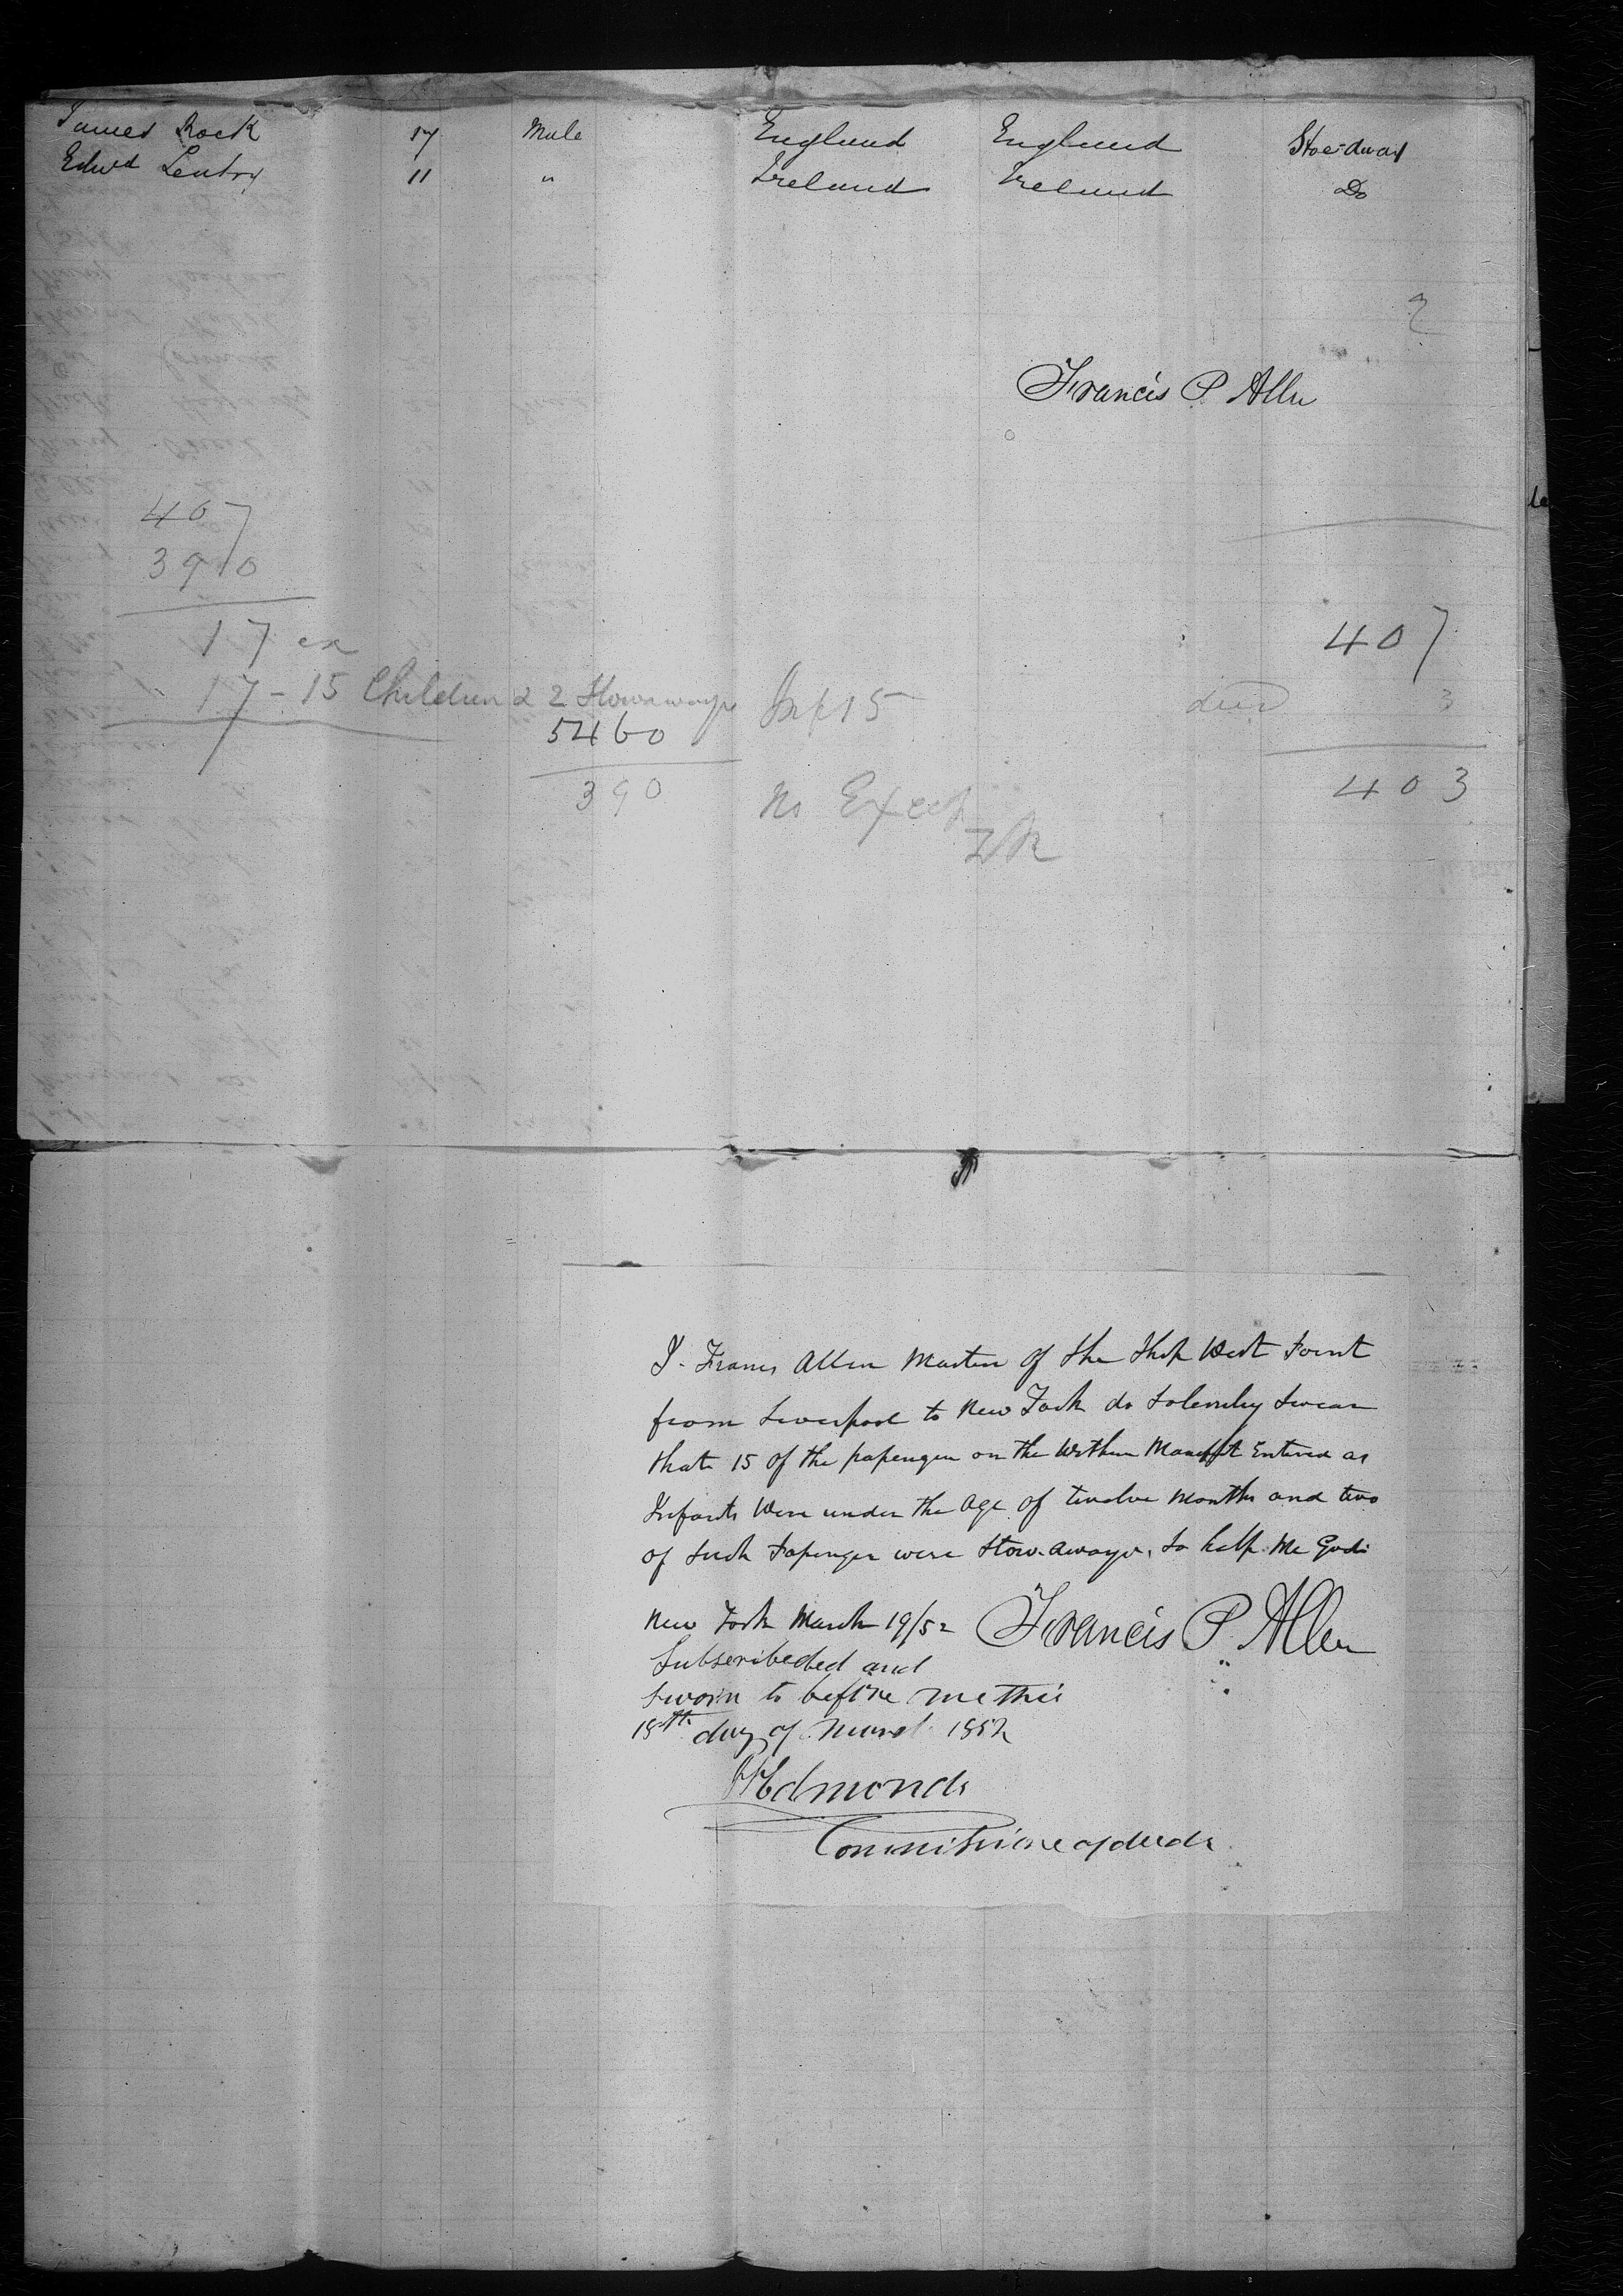 James Rock 17 Male England England Stoe-away
Edwd Lentry 11 " Ireland Ireland Do
Francis P Allen
407
390
17 ex
17 - 15 Children & 2 Stowaways
5460
390
Inf 15
No Except
407
died 3
403
I. Francis Allen Master of the Ship West Point
from Liverpool to New York do Solemnly Swear
that 15 of the passengers on the Within Manifest Entered as
Infants Were under the Age of twelve Months and two
of Such Passenger were Stow-aways, So help Me God
New York March 19/52 Francis P. Allen
Subscribeded and
Sworn to before me this
18th day of March 1852
Edmonds
Commissione of deeds